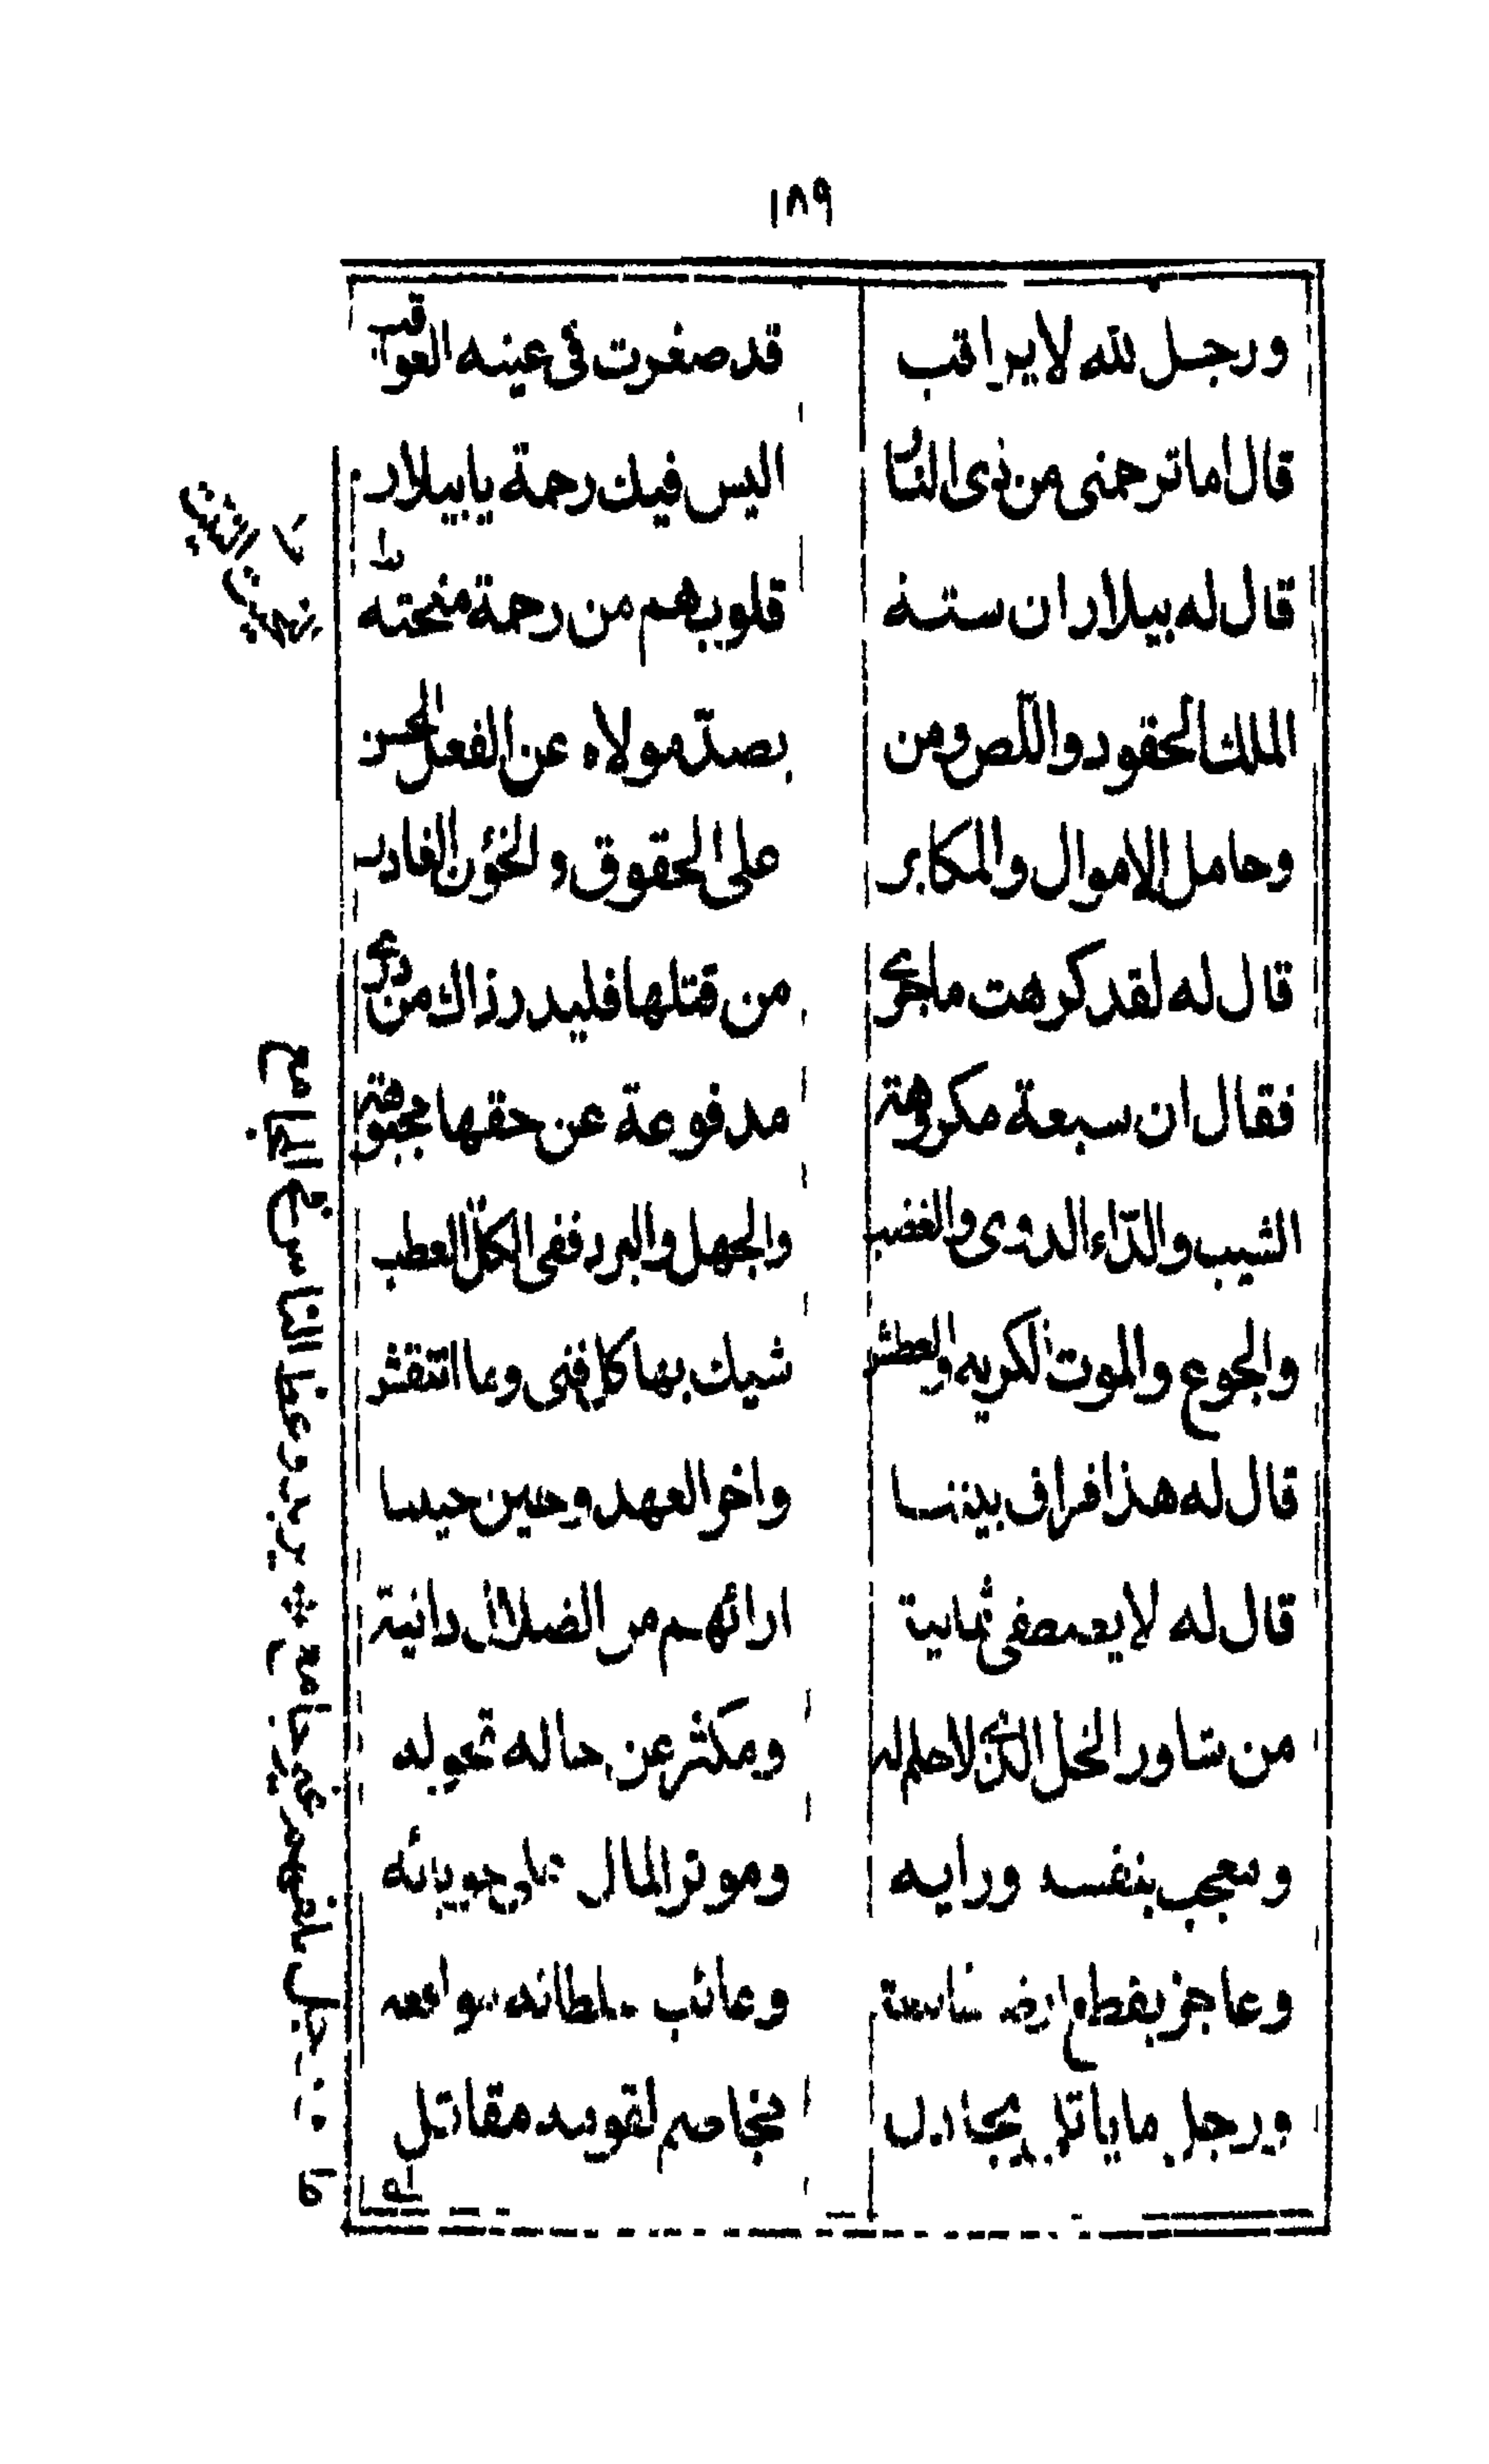 ١٨٩
ورجل لله لا يراقب قد صغرت فى عينه العواقب
قال اما ترحمنى من ذى النار اليس فيك رحمة يا بيلار
قال له بيلار ان ستة قلوبهم من رحمة منحته
الملك الحقود واللص ومن يصدّ مولاه عن الفعل الحسن
وحامل الاموال والمكابر على الحقوق والخؤن الغادر
قال له لقد كرهت ما جرى من قتلها فليدر ذاك من درى
فقال ان سبعة مكروهة مدفوعة عن حقها مجبوهة
الشيب والدّاء الدوى والغضب والجهل والبرد ففى الكلّ العطب
والجوع والموت الكريه والعطش شيك بها كل فتى وما انتقش
قال له هذا فراق بيننا واخر العهد وحين حيننا
قال له لا يعصفى ثمانية ارائهم من الضلال دانية
من شاور الخل الذى لا حلم له ومكثر عن حاله تحوله
ومعجب بنفسه ورايه وموثر المال على حوبائه
وعاجز يقطع ارضا شاسعة وعائب سلطانه
ورجل ما ياتل يجادل مخاصم لقومه مقاتل